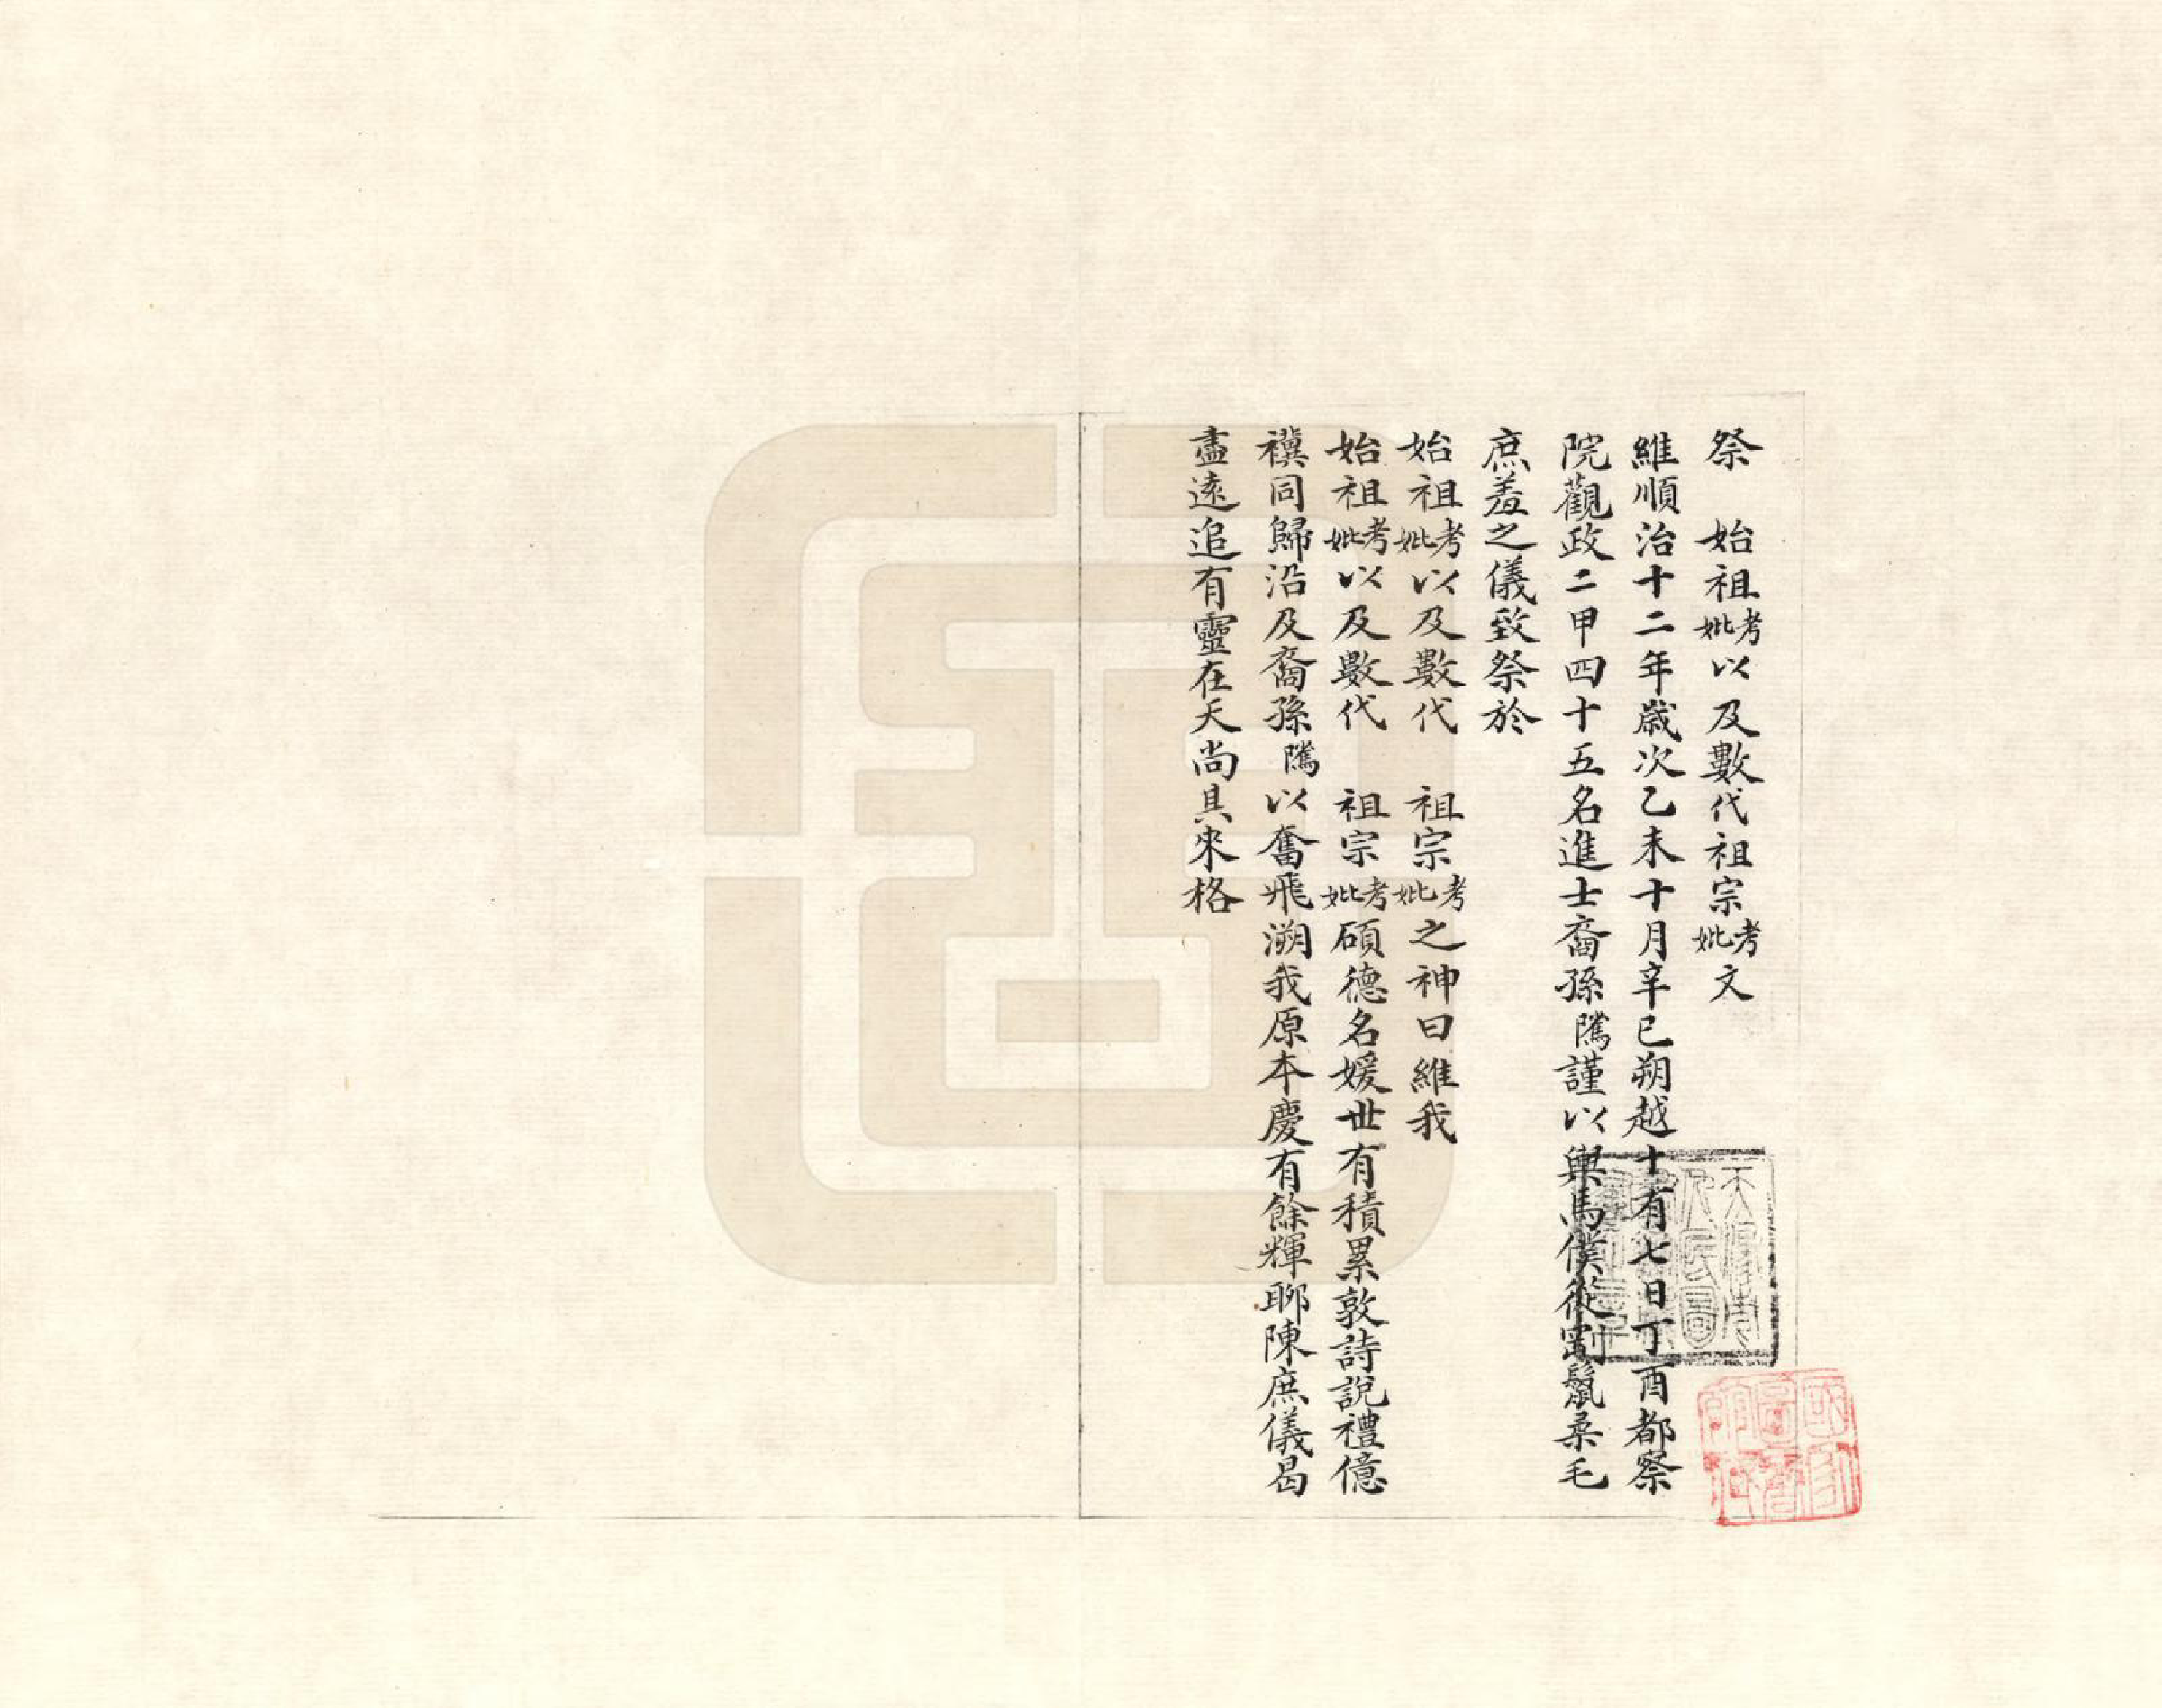 祭　始祖考妣以及數代祖宗考妣文
維順治十二年歲次乙未十月辛巳朔越十有七日丁酉都察
院觀政二甲四十五名進士裔孫騰謹以輿馬僕從割鬣柔毛
庶羞之儀致祭於
始祖考妣以及數代　祖宗考妣之神曰維我
始祖考妣以及數代　祖宗考妣碩德名媛世有積累敦詩說禮億
禩同歸沿及裔孫騰以奮飛溯我原本慶有餘輝聊陳庶儀曷
盡遠追有靈在天尚具來格